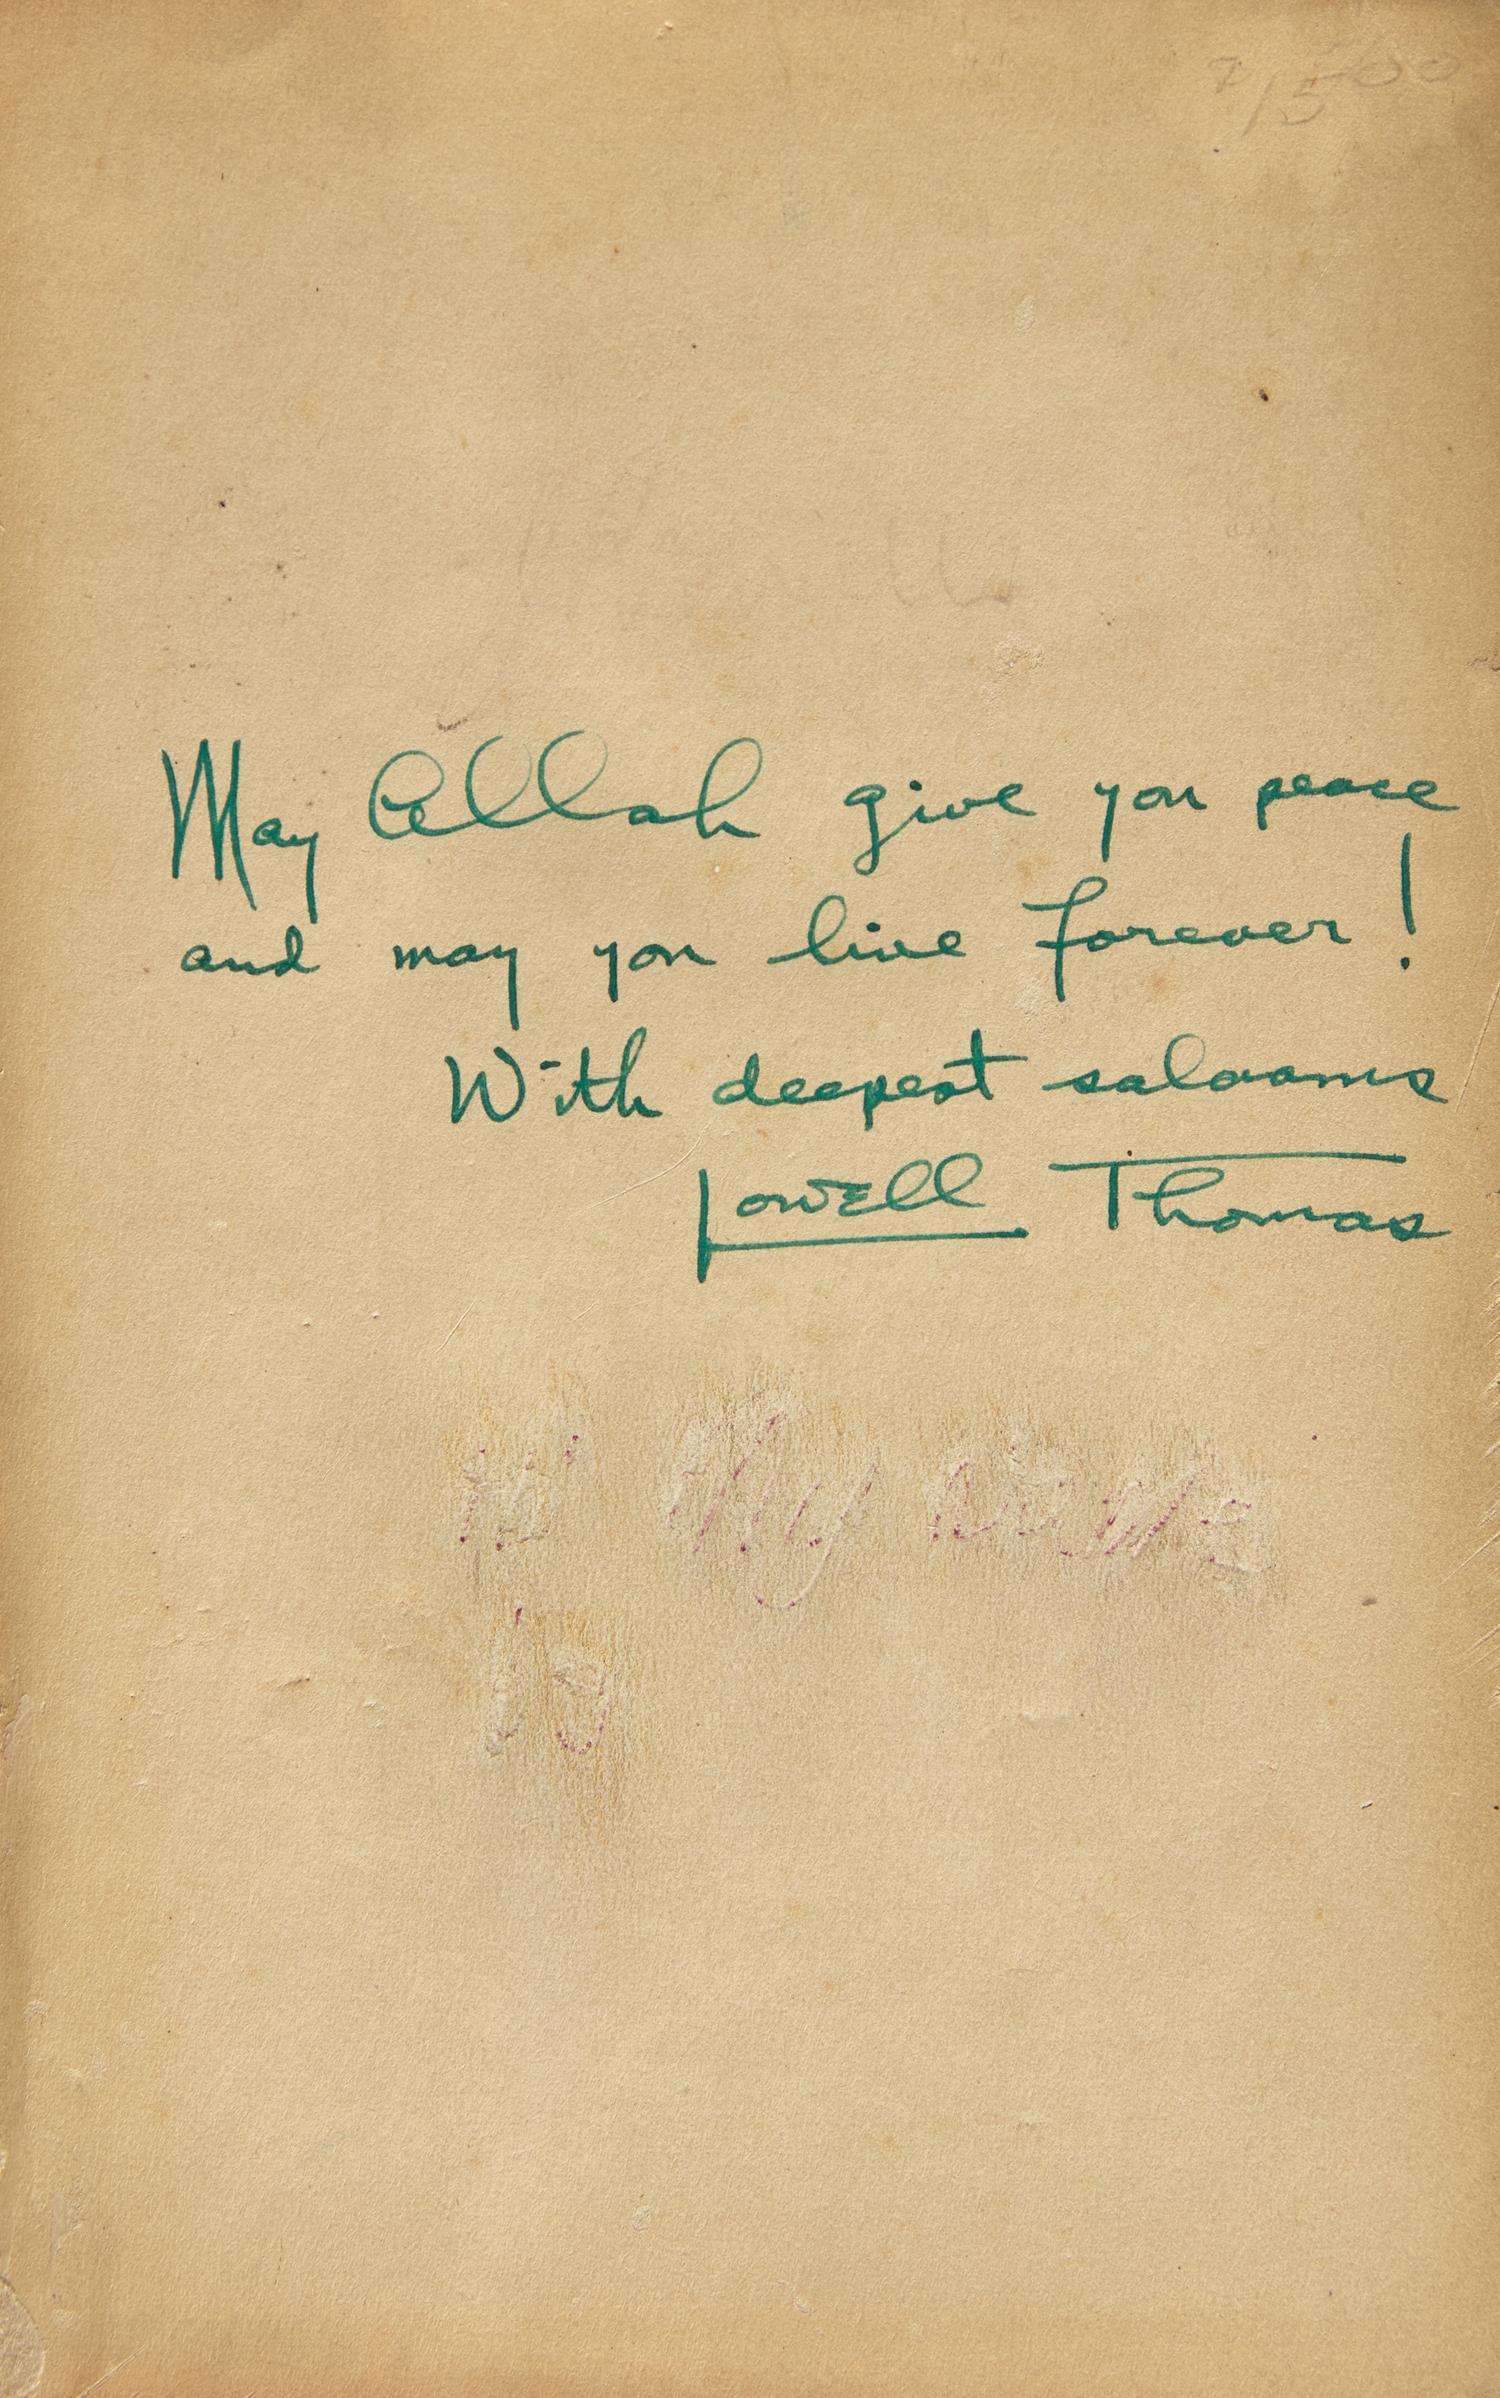 May Allah give you peace
and may you live forever!
With deepest salaams
Lowell Thomas